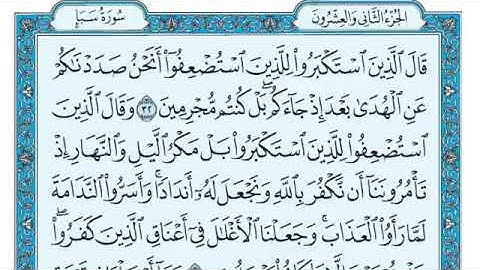 الجُزْءُ الثَّانِى وَالعِشْرُونَ
سُورَةُ سَبَإٍ
قَالَ ٱلَّذِينَ ٱسْتَكْبَرُوا۟ لِلَّذِينَ ٱسْتُضْعِفُوٓا۟ أَنَحْنُ صَدَدْنَٰكُمْ
عَنِ ٱلْهُدَىٰ بَعْدَ إِذْ جَآءَكُم ۖ بَلْ كُنتُم مُّجْرِمِينَ ٣٢ وَقَالَ ٱلَّذِينَ
ٱسْتُضْعِفُوا۟ لِلَّذِينَ ٱسْتَكْبَرُوا۟ بَلْ مَكْرُ ٱلَّيْلِ وَٱلنَّهَارِ إِذْ
تَأْمُرُونَنَآ أَن نَّكْفُرَ بِٱللَّهِ وَنَجْعَلَ لَهُۥٓ أَندَادًا ۚ وَأَسَرُّوا۟ ٱلنَّدَامَةَ
لَمَّا رَأَوُا۟ ٱلْعَذَابَ ۚ وَجَعَلْنَا ٱلْأَغْلَٰلَ فِىٓ أَعْنَاقِ ٱلَّذِينَ كَفَرُوا۟ ۖ